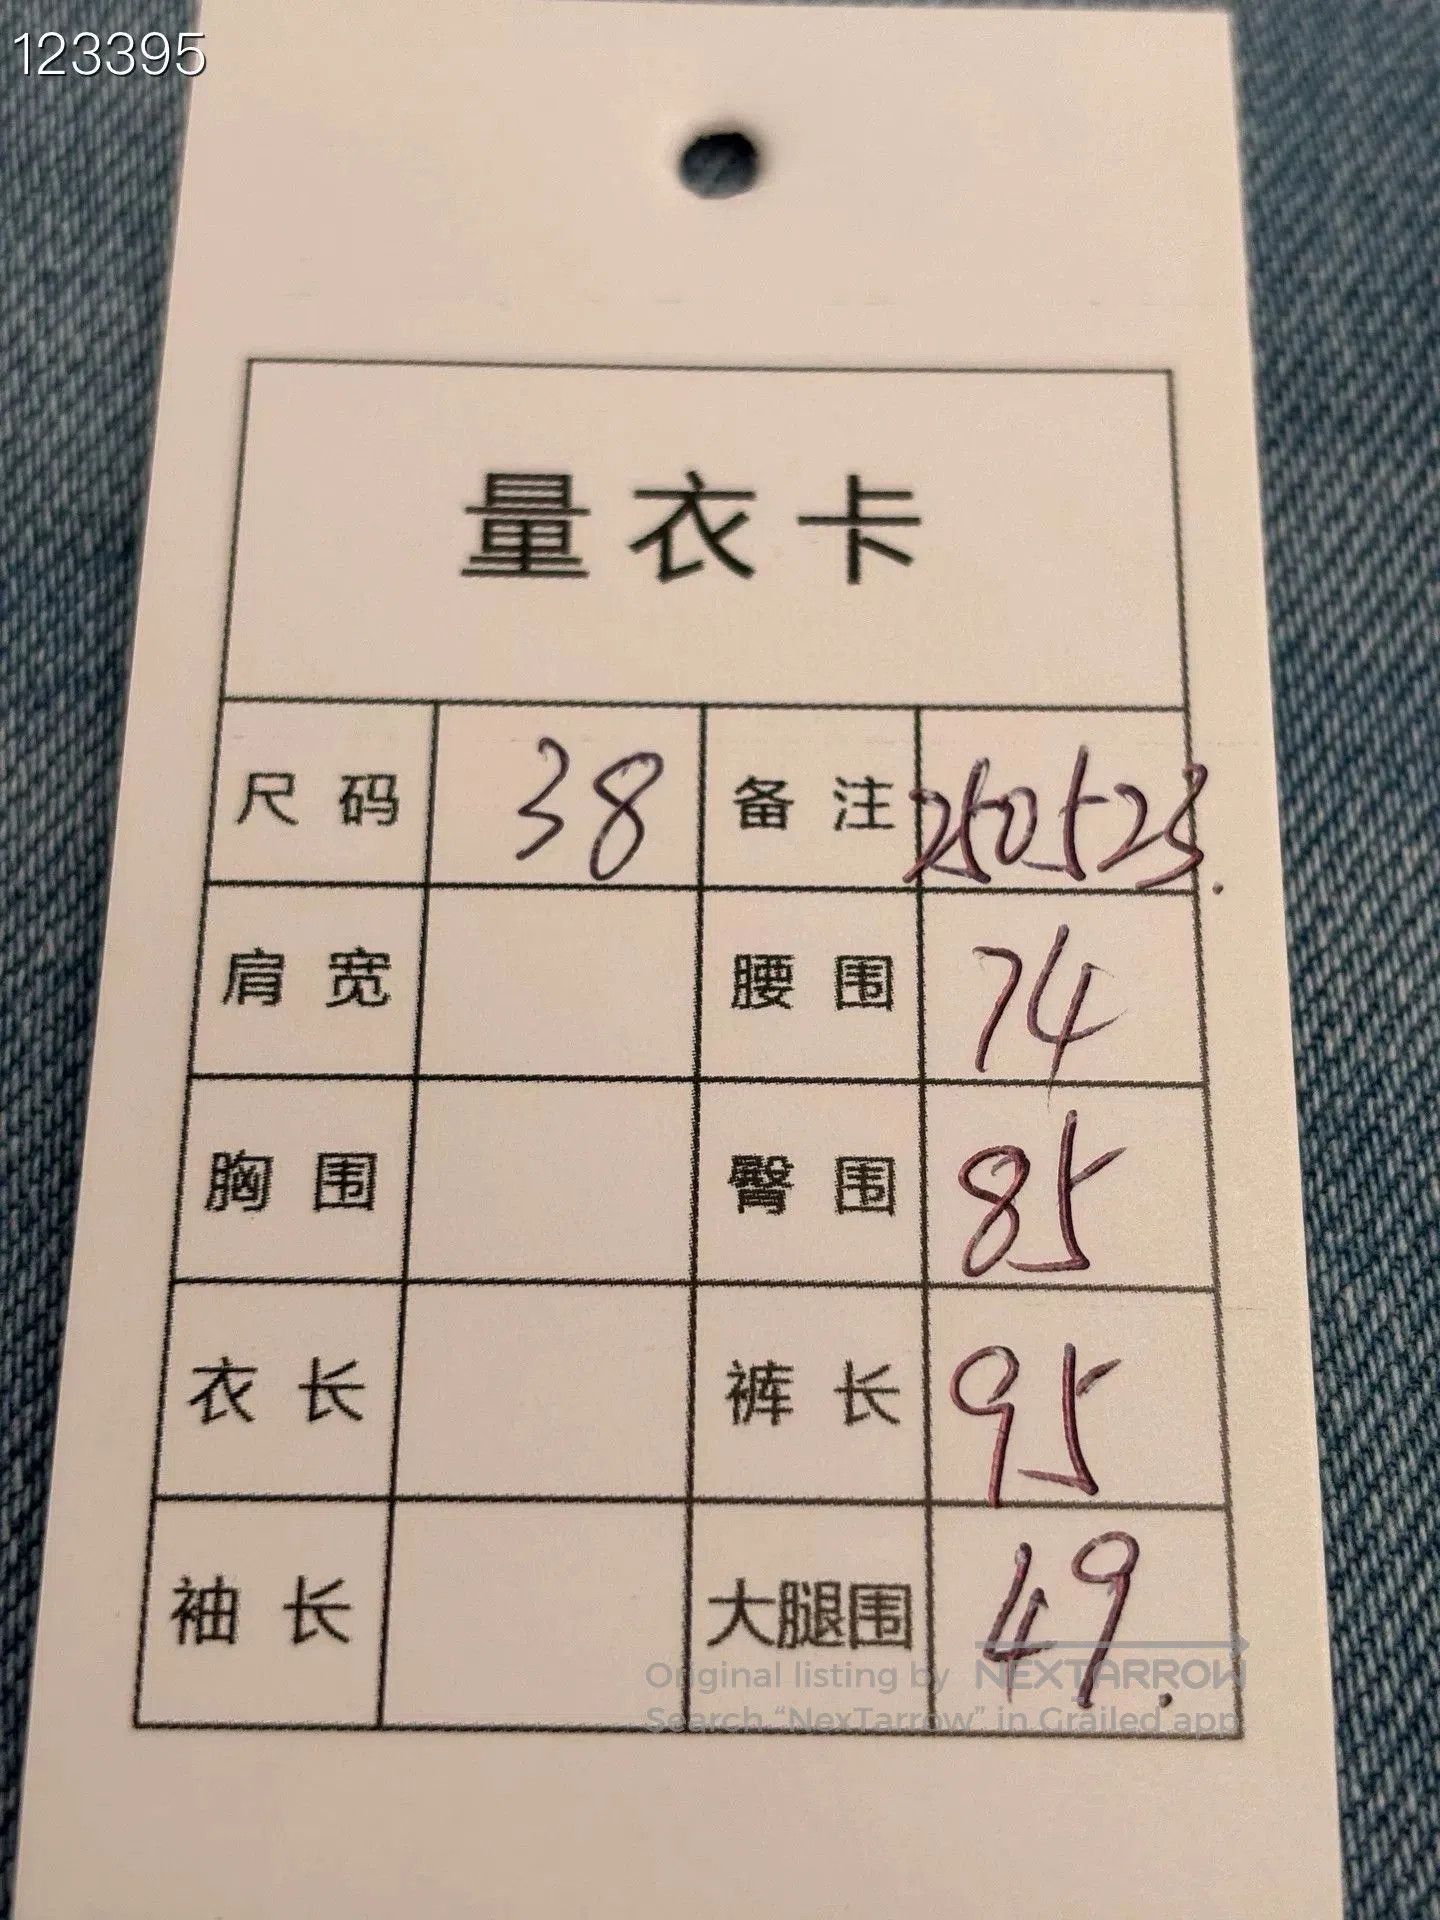 123395
量衣卡
尺码 38 备注 250523.
肩宽 腰围 74
胸围 臀围 85
衣长 裤长 95
袖长 大腿围 49.
Original listing by NEXTARROW
Search “NexTarrow” in Grailed app